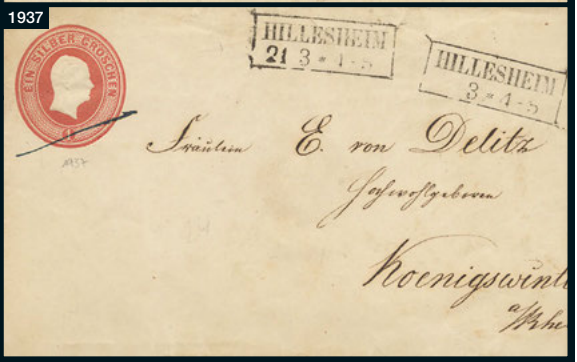 1937
EIN SILBER GROSCHEN
1
HILLESHEIM
21 3 * 4-5
HILLESHEIM
3 * 4-5
1937
Fräulein E. von Delitz
Hochwohlgeboren
Koenigswint
a/Rhe